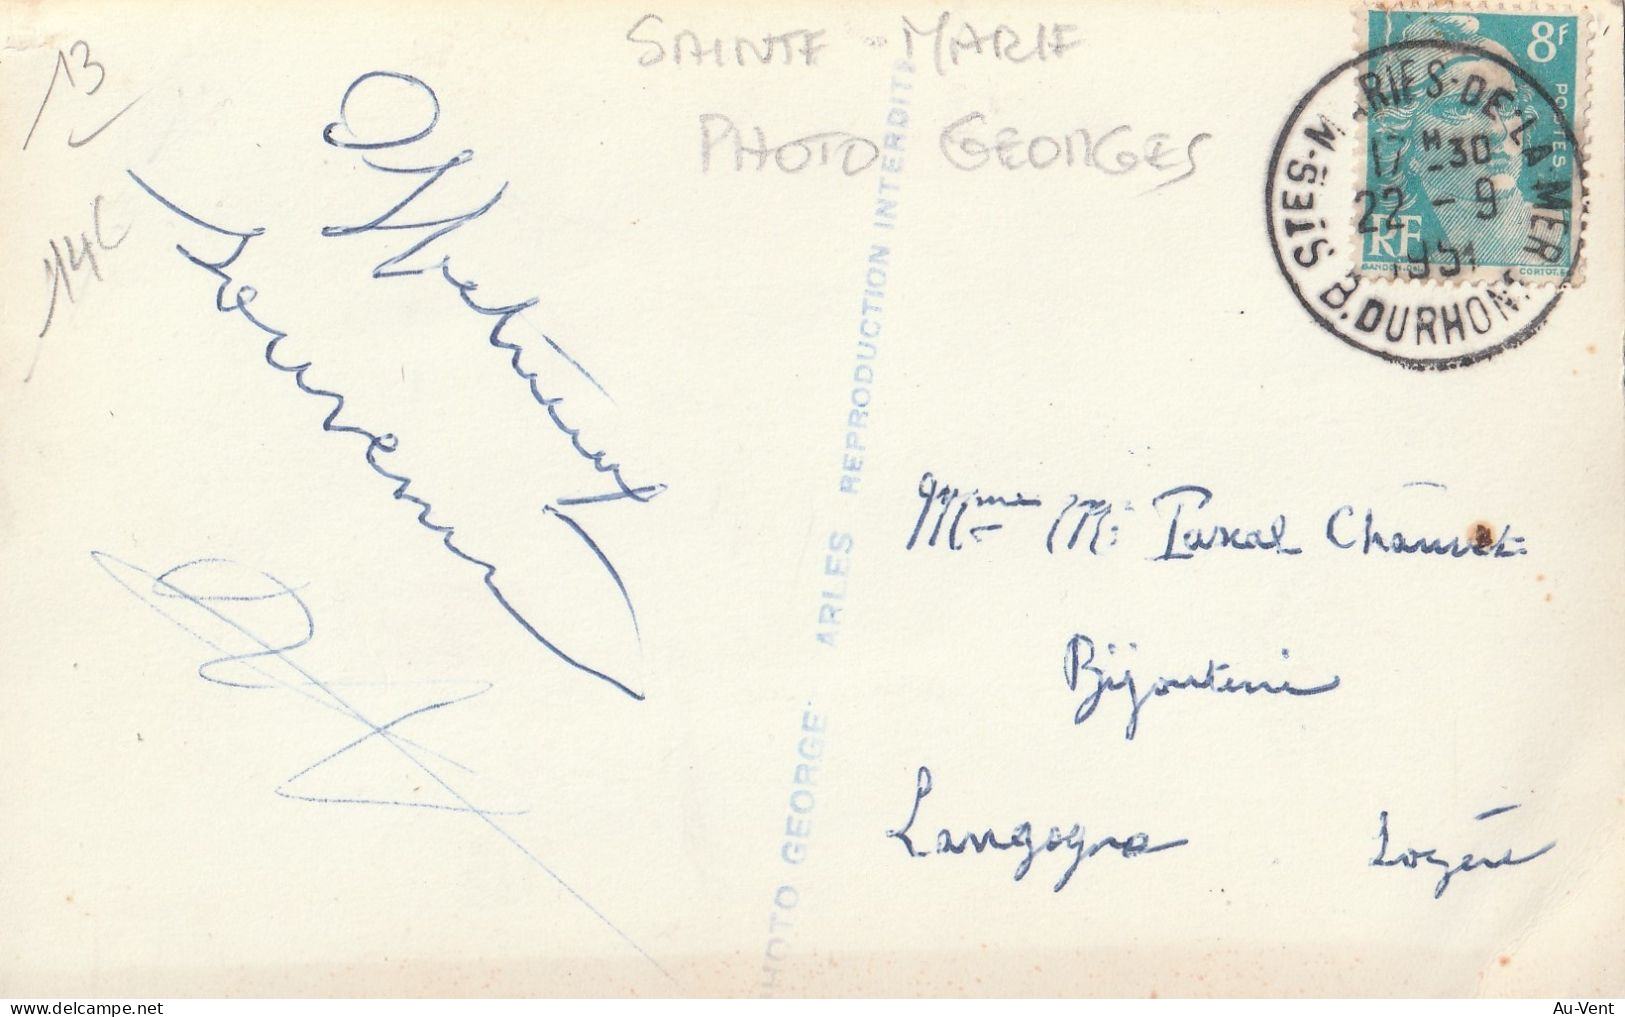 13
SAINTE-MARIE
PHOTO GEORGES
14C
Souvenir
PHOTO GEORGE ARLES REPRODUCTION INTERDITE
8F
POSTES
RF
GANDON.DEL
CORTOT.SC
STES-MARIES-DE-LA-MER
17H30
22 - 9
1951
B. DU RHONE
Mme Mr Pascal Chauvet
Bijouterie
Langogne Lozère
Au-Vent